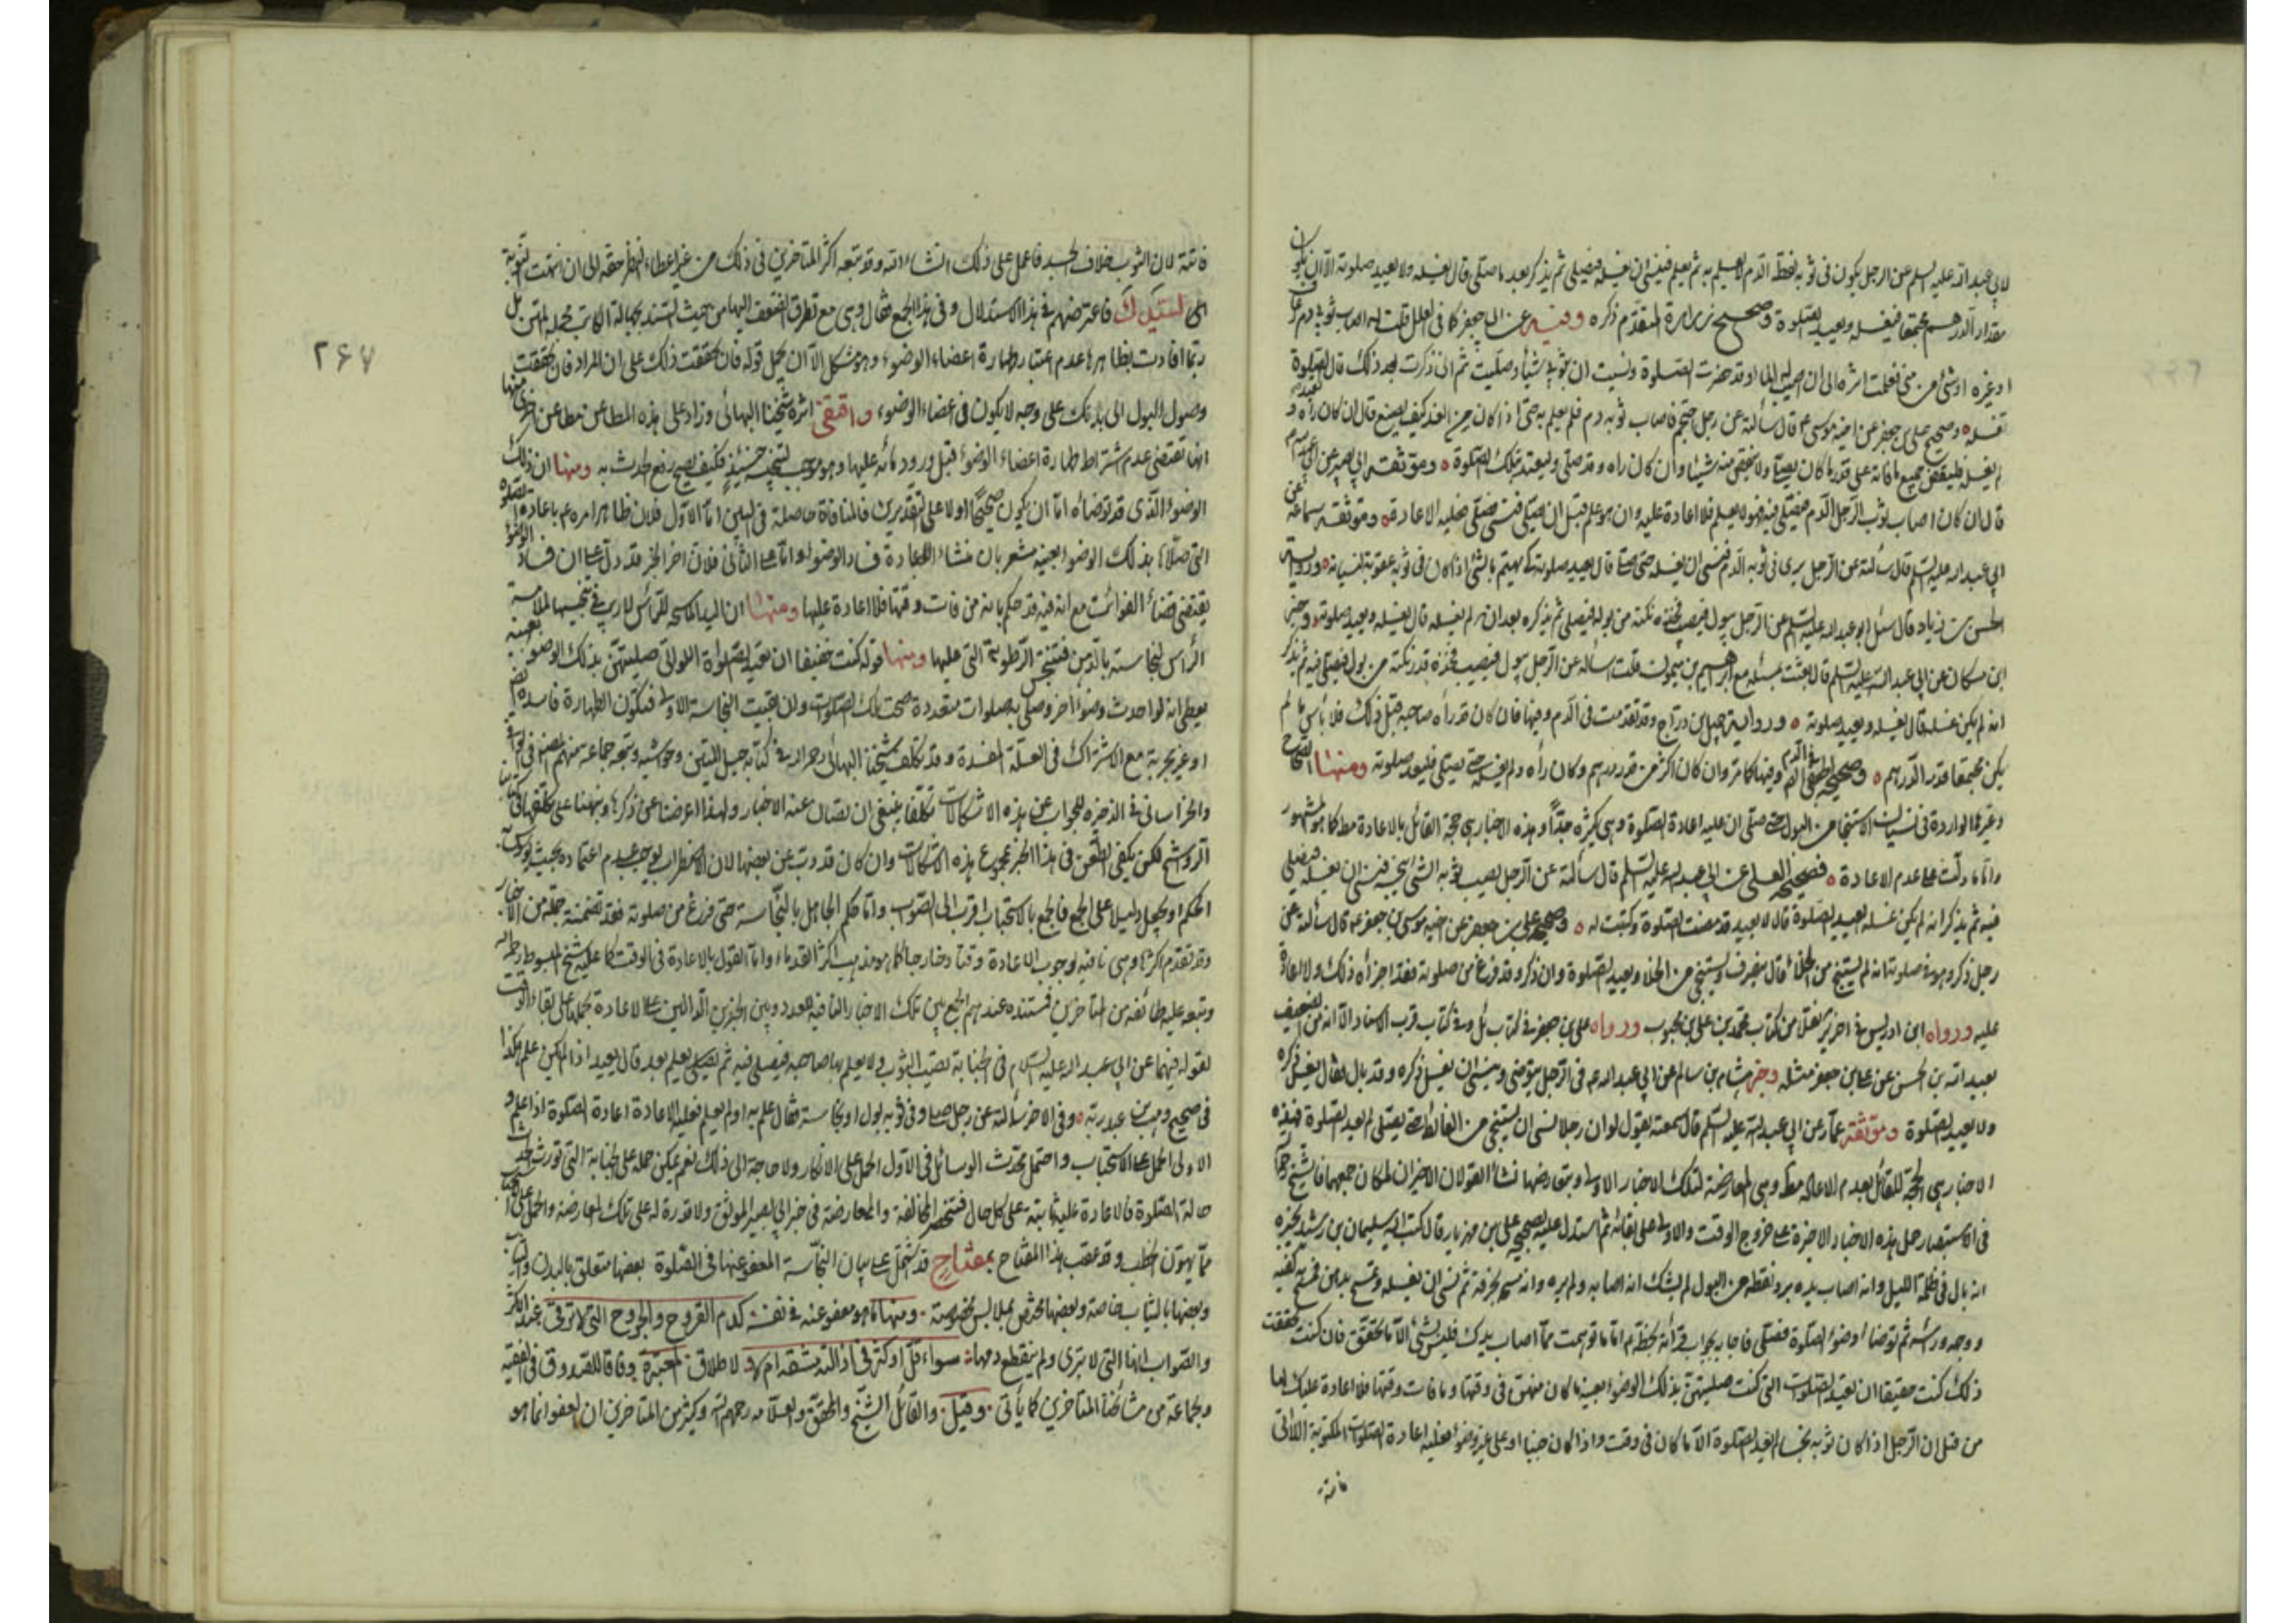 لابي عبد الله عليه السلم عن الرجل يكون في ثوبه نقط الدم لا يعلم به ثم يعلم فينسى ان يغسله فيصلي ثم يذكر بعد ما صلى قال يغسله ولا يعيد صلوته الا ان يكون
مقدار الدرهم مجتمعا فيغسله ويعيد الصلوة وصحيح زرارة المتقدم ذكره وفيه عن ابي جعفر كما في العلل قلت له اصاب ثوبي دم رعاف
او غيره او شيء من مني فعلمت اثره الى ان اصيب له الماء وقد حضرت الصلوة ونسيت ان بثوبي شيئا وصليت ثم اني ذكرت بعد ذلك قال تعيد الصلوة
تغسله وصحيح علي بن جعفر عن اخيه موسى ع قال سألته عن رجل احتجم فاصاب ثوبه دم فلم يعلم به حتى اذا كان من الغد كيف يصنع قال ان كان رآه و
لم يغسله فليقض جميع ما فاته على قدر ما كان يصلي ولا ينقص منه شيئا وان كان رآه وقد صلى فليعتد بتلك الصلوة وموثقة ابي بصير عن ابي عبد الله ع
قال ان كان اصاب ثوب الرجل الدم فصلى فيه فهو لا يعلم فلا اعادة عليه وان هو علم قبل ان يصلي فنسي فصلى فعليه الاعادة وموثقة سماعة عن
ابي عبد الله عليه السلم قال سألته عن الرجل يرى في ثوبه الدم فنسي ان يغسله حتى يصلي قال يعيد صلوته كي يهتم بالشئ اذا كان في ثوبه عقوبة لنسيانه ورواية
الحسن بن زياد قال سئل ابو عبد الله عليه السلم عن الرجل يبول فيصيب فخذه نكتة من بوله فيصلي ثم يذكره بعد انه لم يغسله قال يغسله ويعيد صلوته وخبر
ابن مسكان عن ابي عبد الله عليه السلم قال بعثت بمسئلة مع ابراهيم بن ميمون قلت اسأله عن الرجل يبول فيصيب فخذه قدر نكتة من بول فيصلي فيه ثم يذكر
انه لم يكن غسله قال يغسله ويعيد صلوته ورواية جميل بن دراج وقد تقدمت في الدم وفيها فان كان قد رآه صاحبه قبل ذلك فلا بأس ما لم
يكن مجتمعا قدر الدرهم وصحيحة الجعفي في الدم وفيها كما مر وان كان اكثر من قدر درهم وكان رآه ولم يغسله حتى يصلي فليعد صلوته ومنها الصحاح
وغيرها الواردة في نسيان الاستنجاء من البول حتى صلى ان عليه اعادة الصلوة وهي كثيرة جدا وهذه الاخبار هي حجة القائل بالاعادة مط كما هو المشهور
واما ما دلت على عدم الاعادة فصحيح العلا عن ابي عبد الله عليه السلم قال سألته عن الرجل يصيب ثوبه الشئ ينجسه فينسى ان يغسله فيصلي
فيه ثم يذكر انه لم يكن غسله ايعيد الصلوة قال لا يعيد قد مضت الصلوة وكتبت له وصحيح علي بن جعفر عن اخيه موسى بن جعفر ع قال سألته عن
رجل ذكر وهو في صلوته انه لم يستنج من الخلاء قال ينصرف ويستنجي من الخلاء ويعيد الصلوة وان ذكر وقد فرغ من صلوته فقد اجزأه ذلك ولا اعادة
عليه ورواه ابن ادريس في اخر ئر نقلا من كتاب محمد بن علي بن محبوب ورواه علي بن جعفر في كتاب ئل وفي كتاب قرب الاسناد الا انه من الضعيف
بعبد الله بن الحسن عن علي بن جعفر مثله وخبر هشام بن سالم عن ابي عبد الله ع في الرجل يتوضى وينسى ان يغسل ذكره وقد بال فقال يغسل ذكره
ولا يعيد الصلوة وموثقة عمار عن ابي عبد الله عليه السلم قال سمعته يقول لو ان رجلا نسي ان يستنجي من الغائط حتى يصلي لم يعد الصلوة فهذه
الاخبار هي الحجة للقائل بعدم الاعادة مط وهي المعارضة لتلك الاخبار الاولى وبتعارضها نشأ القولان الاخيران لمكان جمعهما فالشيخ جمع
في الاستبصار حمل هذه الاخبار الاخيرة على خروج الوقت والاولى على بقائه ثم استدل عليه بصحيح علي بن مهزيار قال كتب اليه سليمان بن رشيد يخبره
انه بال في ظلمة الليل وانه اصاب يده برد نقطة من البول لم يشك انه اصابه ولم يره وانه مسحه بخرقة ثم نسي ان يغسله وتمسح بدهن فمسح به كفيه
ووجهه ورأسه ثم توضأ وضوء الصلوة فصلى فاجابه بجواب قرأته بخطه ام اما ما توهمت مما اصاب يدك فليس بشئ الا ما تحقق فان كنت حققت
ذلك كنت حقيقا ان تعيد الصلوات التي كنت صليتهن بذلك الوضوء بعينه ما كان منهن في وقتها وما فات وقتها فلا اعادة عليك لها
من قبل ان الرجل اذا كان ثوبه نجسا لم يعد الصلوة الا ما كان في وقت واذا كان جنبا او على غير وضوء فعليه اعادة الصلوات المكتوبة اللاتي
فاتته
٢٦٧
فاتته لان الثوب خلاف الجسد فاعمل على ذلك انشاء الله وقد تبعه اكثر المتأخرين في ذلك من غير اعطاء النظر حقه الى ان انتهت النوبة
الى السيد ك فاعترضهم في هذا الاستدلال وفي هذا الجمع فقال وهي مع تطرق الضعف اليها من حيث السند بجهالة الكاتب مجملة المتن بل
ربما افادت بظاهرها عدم اعتبار طهارة اعضاء الوضوء وهو مشكل الا ان يحمل قوله فان تحققت ذلك على ان المراد فان تحققت
وصول البول الى بدنك على وجه لا يكون في اعضاء الوضوء واقتفى اثره شيخنا البهائي وزاد على هذه المطاعن مطاعن اخرى منها
انها تقتضي عدم اشتراط طهارة اعضاء الوضوء قبل ورود مائه عليها وهو موجب لتنجسه حينئذ فكيف يصح رفع الحدث به ومنها ان ذلك
الوضوء الذي قد توضأه اما ان يكون صحيحا اولا على التقديرين فالمنافاة حاصلة في البين اما الاول فلان ظاهر امره ع باعادة الصلوة
التي صلاها بذلك الوضوء بعينه مشعر بان منشاء الاعادة فساد الوضوء واما على الثاني فلان اخر الخبر قد دل على ان فساد الوضوء
يقتضي قضاء الفوائت مع انه فيه قد حكم بانه من فات وقتها فلا اعادة عليها ومنها ان اليد الماسحة للرأس لا ريب في تنجسها لملامسة
الرأس لنجاسته بالدهن فتنجس الرطوبة التي عليها ومنها قوله كنت حقيقا ان تعيد الصلواة اللواتي صليتهن بذلك الوضوء بعينه
يعطي انه لو احدث وضوءا اخر وصلى به صلوات متعددة صحت تلك الصلوات وان بقيت النجاسة الاولى فتكون الطهارة فاسدة
او غير مجزية مع الاشتراك في العلة المفسدة وقد تكلف شيخنا البهائي رحمه الله في كتابه حبل المتين وحواشيه وتبعه جماعة منهم المص في الوافي
والخراساني في الذخيرة للجواب عن هذه الاشكالات تكلفا ينبغي ان تصان عنه الاخبار ولهذا اعرضنا عن ذكرها ونبهنا على تكلفها في كتابنا
الرواشح لكن يكفي الطعن في هذا الخبر مجموع هذه الاشكالات وان كان قد ذب عن بعضها لان الاضطراب يوجب عدم اعتماده بحيث يدرك
الحكم او يجعل دليلا على الجمع فالجمع بالاستحباب اقرب الى الصواب واما حكم الجاهل بالنجاسة حتى فرغ من صلوته فقد تضمنته جملة من الاخبار
وقد تقدم اكثرها وهي نافية لوجوب الاعادة وقتا وخارجا كما هو مذهب اكثر القدماء واما القول بالاعادة في الوقت كما عليه الشيخ في المبسوط رحمه الله
وتبعه عليه طائفة من المتأخرين فمستنده عندهم الجمع بين تلك الاخبار النافية للعدد وبين الخبرين الدالين على الاعادة بحملها على بقاء الوقت
لقوله فيهما عن ابي عبد الله عليه السلام في الجنابة تصيب الثوب ولا يعلم بها صاحبه فيصلي فيه ثم يعلم بعد قال يعيد اذا لم يكن علم هكذا
في صحيح وهيب بن عبد ربه وفي الاخر سألته عن رجل صلى وفي ثوبه بول او نجاسة فقال علم به او لم يعلم فعليه الاعادة اعادة الصلوة اذا علم و
الاولى الحمل على الاستحباب واحتمل محدث الوسائل في الاول الحمل على الانكار ولا حاجة الى ذلك نعم يمكن حمله على الجنابة التي تورث الحدث
حالة الصلوة فالاعادة عليه ثابتة على كل حال فتنحصر المخالفة والمعارضة في خبر ابي بصير الموثق ولا قدرة له على تلك المعارضة والحمل على الاستحباب
مما يهون الخطب وقد عقب هذا المفتاح بمفتاح قد اشتمل على بيان النجاسة المعفو عنها في الصلوة بعضها متعلق بالبدن والثياب
وبعضها بالثياب خاصة وبعضها مختص بملابس مخصوصة ومنها ما هو معفو عنه في نفسه كدم القروح والجروح التي لا ترقى عند الاكثر
والصواب انها التي لا تبرى ولم ينقطع دمها سواء قل او كثر في ازالته مشقة ام لا لاطلاق المعتبرة وفاقا للصدوق في الفقيه
وجماعة من مشائخنا المتأخرين كما يأتي وقيل والقائل الشيخ والمحقق والعلامة رحمهم الله وكثير من المتأخرين ان العفو انما هو